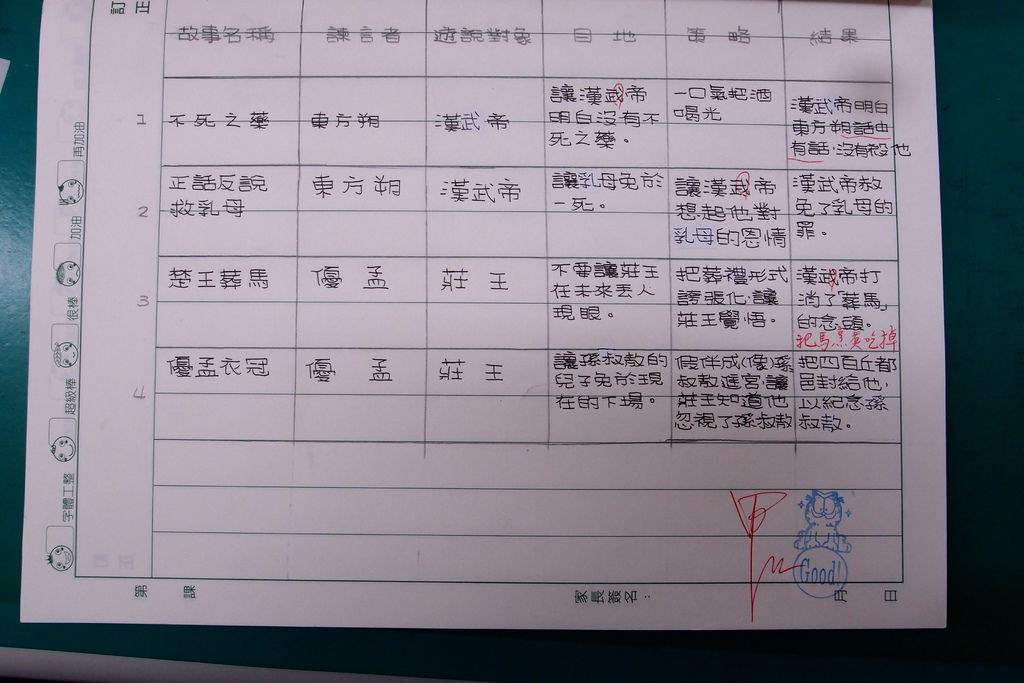 訂正
故事名稱 諫言者 遊說對象 目地 策略 結果
1
不死之藥
東方朔
漢武帝
讓漢武帝
明白沒有不
死之藥。
一口氣把酒
喝光
漢武帝明白
東方朔話中
有話,沒有殺他
2
正話反說
救乳母
東方朔
漢武帝
讓乳母免於
一死。
讓漢武帝
想起他對
乳母的恩情
漢武帝赦
免了乳母的
罪。
3
楚王葬馬
優孟
莊王
不要讓莊王
在未來丟人
現眼。
把葬禮形式
誇張化,讓
莊王覺悟。
漢武帝打
消了「葬馬」
的念頭。
把馬煮熟吃掉
4
優孟衣冠
優孟
莊王
讓孫叔敖的
兒子免於現
在的下場。
假伴成(像)孫
叔敖進宮,讓
莊王知道他
忽視了孫叔敖
把四百丘都
邑封給他,
以紀念孫
叔敖。
再加油
加油
很棒
超級棒
字體工整
訂正
第 課
家長簽名:
月 日
Good!